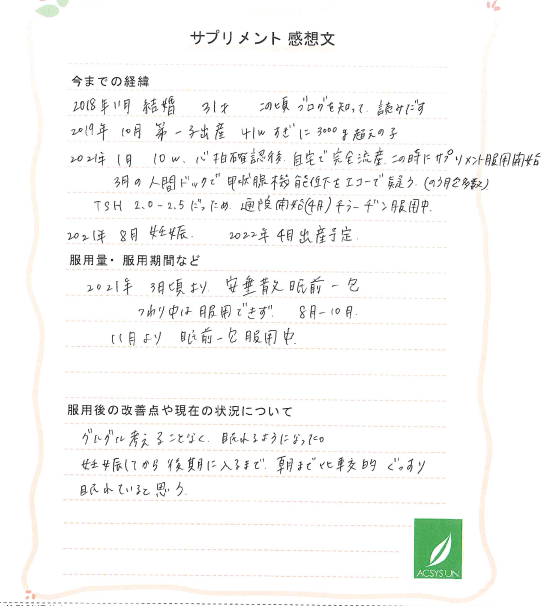 サプリメント 感想文
今までの経緯
2018年11月 結婚 31才 この頃 ブログを知って、読みだす
2019年 10月 第一子出産 41wすぎに3000g超えの子
2021年 1月 10w、心拍確認後、自宅で完全流産、この時にサプリメント服用開始
3月の人間ドックで甲状腺機能低下をエコーで疑う。(のう胞多数)
TSH 2.0-2.5だったため 通院開始(4月)チラーヂン服用中。
2021年 8月 妊娠 2022年 4月 出産予定。
服用量・服用期間など
2021年 3月頃より 安垂散 眠前一包
つわり中は服用できず 8月-10月。
11月より 眠前一包服用中。
服用後の改善点や現在の状況について
グルグル考えることなく、眠れるようになった。
妊娠してから後期に入るまで、朝まで比較的ぐっすり
眠れていると思う。
ACSYSUN